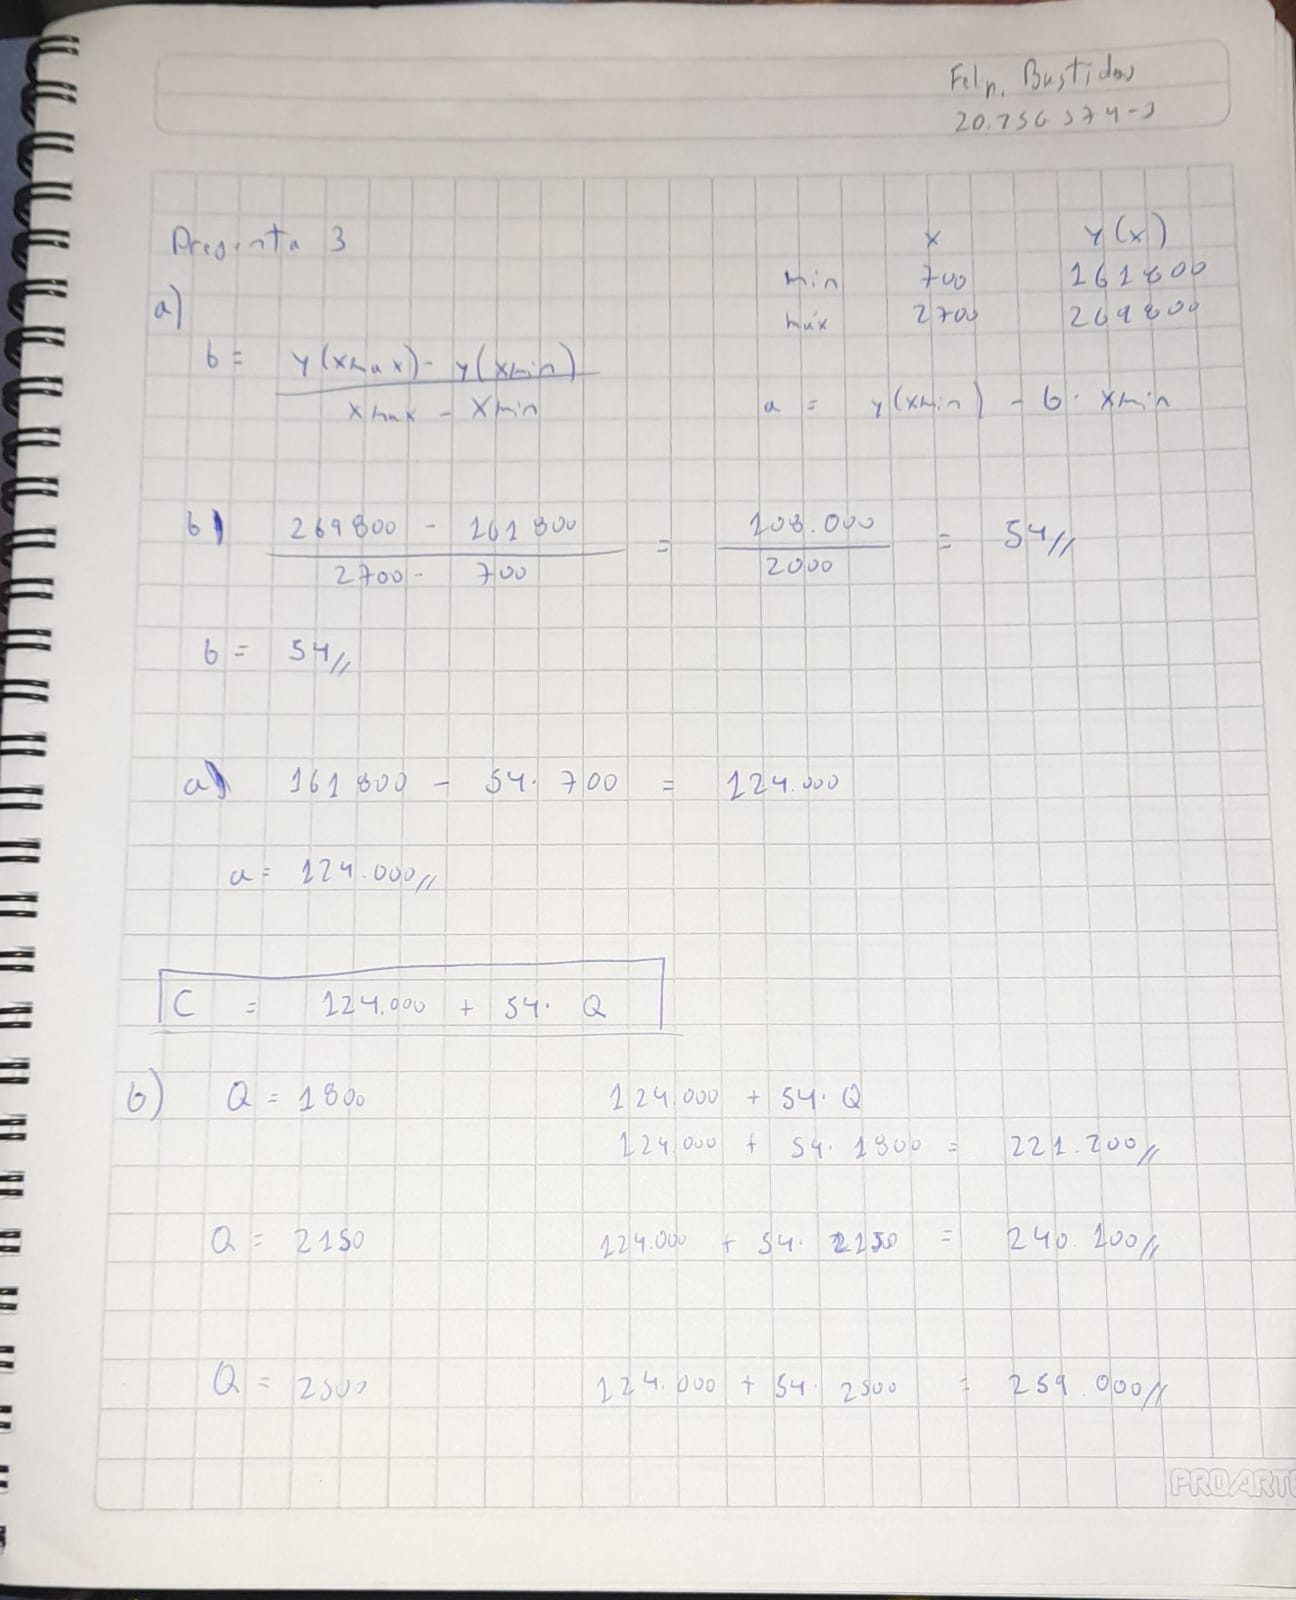 Felp. Bustidos
20.756 574-3
Pregunta 3
x y(x)
min 700 161800
máx 2700 269800
a)
b = y(xmax) - y(xmin)
xmax - xmin
a = y(xmin) - b · xmin
b) 269800 - 161800 = 108.000 = 54//
2700 - 700 2000
b = 54//
a) 161800 - 54 · 700 = 124.000
a = 124.000//
C = 124.000 + 54 · Q
b) Q = 1800 124.000 + 54 · Q
124.000 + 54 · 1800 = 221.200//
Q = 2150 124.000 + 54 · 2150 = 240.100//
Q = 2500 124.000 + 54 · 2500 = 259.000//
PROARTE